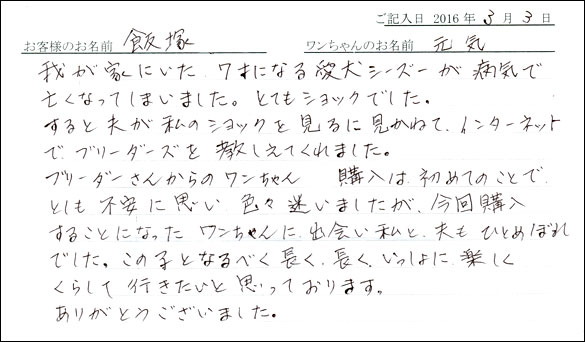 ご記入日 2016年 3月 3日
お客様のお名前 飯塚 ワンちゃんのお名前 元気
我が家にいた、7才になる愛犬シーズーが病気で
亡くなってしまいました。とてもショックでした。
すると夫が私のショックを見るに見かねて、インターネット
で、ブリーダーズを教しえてくれました。
ブリーダーさんからのワンちゃん 購入は、初めてのことで、
とても不安に思い 色々迷いましたが、今回購入
することになった ワンちゃんに、出会い私と、夫も ひとめぼれ
でした。この子となるべく長く、長く、いっしょに、楽しく
くらして行きたいと思っております。
ありがとうございました。